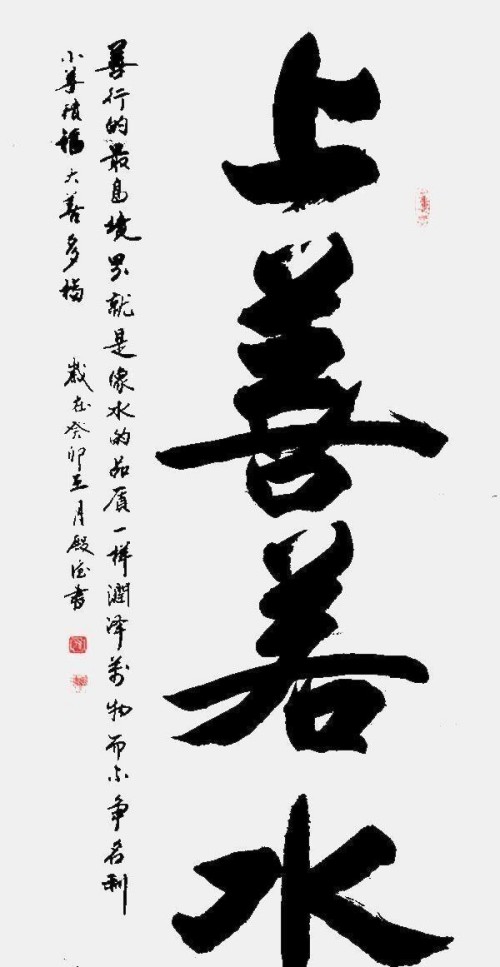 上善若水
善行的最高境界就是像水的品质一样润泽万物而不争名利
小善积福大善多福
岁在癸卯五月殿臣书